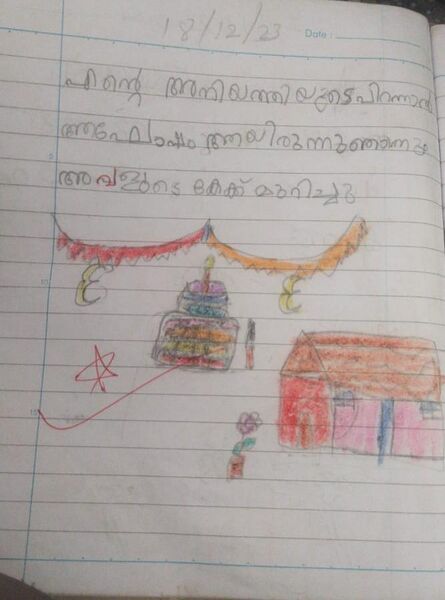 18/12/23 Date:
എന്റെ അനിയത്തിയുടെ പിറന്നാൾ
ആയിരുന്നു ഞാനും
അവളുടെ കേക്ക് മുറിച്ചു